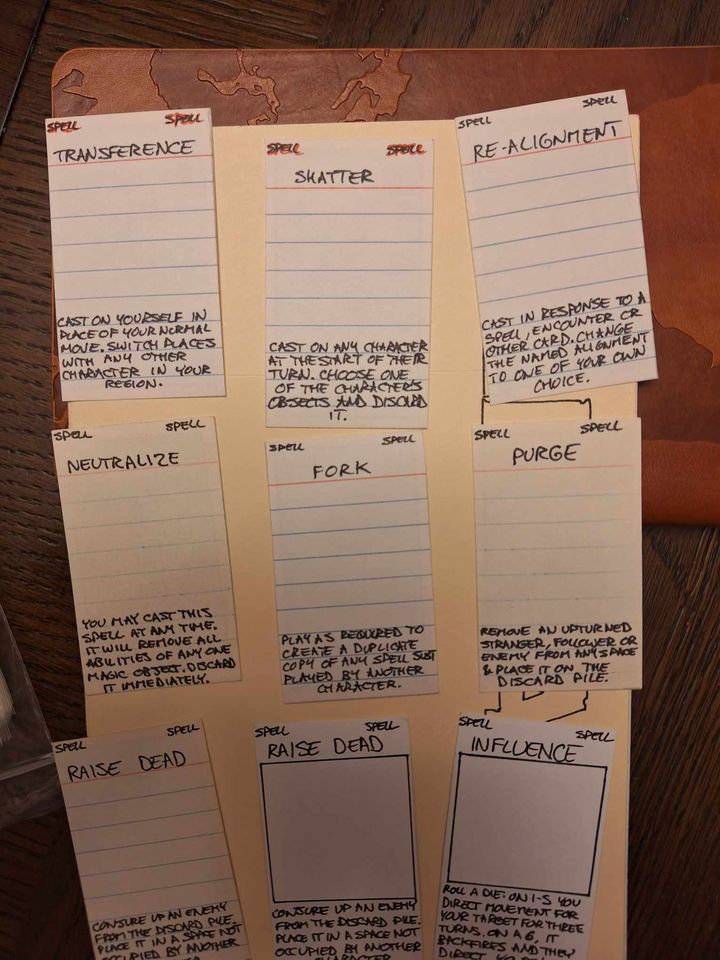 SPELL SPELL
TRANSFERENCE
CAST ON YOURSELF IN
PLACE OF YOUR NORMAL
MOVE. SWITCH PLACES
WITH ANY OTHER
CHARACTER IN YOUR
REGION.
SPELL SPELL
SHATTER
CAST ON ANY CHARACTER
AT THE START OF THEIR
TURN. CHOOSE ONE
OF THE CHARACTERS
OBJECTS AND DISCARD
IT.
SPELL SPELL
RE-ALIGNMENT
CAST IN RESPONSE TO A
SPELL, ENCOUNTER OR
OTHER CARD. CHANGE
THE NAMED ALIGNMENT
TO ONE OF YOUR OWN
CHOICE.
SPELL SPELL
NEUTRALIZE
YOU MAY CAST THIS
SPELL AT ANY TIME.
IT WILL REMOVE ALL
ABILITIES OF ANY ONE
MAGIC OBJECT. DISCARD
IT IMMEDIATELY.
SPELL SPELL
FORK
PLAY AS REQUIRED TO
CREATE A DUPLICATE
COPY OF ANY SPELL JUST
PLAYED BY ANOTHER
CHARACTER.
SPELL SPELL
PURGE
REMOVE AN UPTURNED
STRANGER, FOLLOWER OR
ENEMY FROM ANY SPACE
& PLACE IT ON THE
DISCARD PILE.
SPELL SPELL
RAISE DEAD
CONJURE UP AN ENEMY
FROM THE DISCARD PILE.
PLACE IT IN A SPACE NOT
OCCUPIED BY ANOTHER
SPELL SPELL
RAISE DEAD
CONJURE UP AN ENEMY
FROM THE DISCARD PILE.
PLACE IT IN A SPACE NOT
OCCUPIED BY ANOTHER
CHARACTER
SPELL SPELL
INFLUENCE
ROLL A DIE: ON 1-5 YOU
DIRECT MOVEMENT FOR
YOUR TARGET FOR THREE
TURNS. ON A 6, IT
BACKFIRES AND THEY
DIRECT